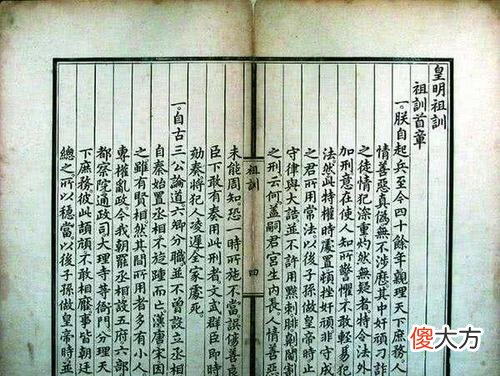 皇明祖訓
祖訓首章
一。朕自起兵至今四十餘年親理天下庶務人
情善惡真偽無不涉歷其中奸頑刁詐
之徒情犯深重灼然無疑者特令法外
加刑意在使人知所警懼不敢輕易犯
法然此特權時處置頓挫奸頑非守成
之君所用常法以後子孫做皇帝時止
守律與大誥並不許用黥刺腓劓閹割
之刑云何蓋嗣君宮生內長人情善惡
祖訓 四
未能周知恐一時所施不當誤傷善良
臣下敢有奏用此刑者文武群臣即時
劾奏將犯人凌遲全家處死
一。自古三公論道六卿分職並不曾設立丞相
自秦始置丞相不旋踵而亡漢唐宋因
之雖有賢相然其間所用者多有小人
專權亂政今我朝罷丞相設五府六部
都察院通政司大理寺等衙門分理天
下庶務彼此頡頏不敢相壓事皆朝廷
總之所以穩當以後子孫做皇帝時並
傻大方